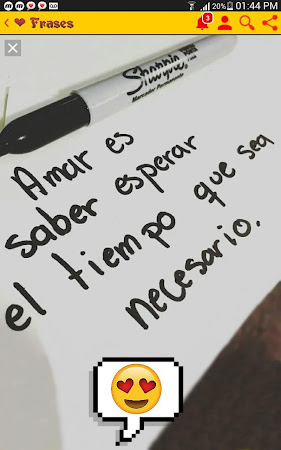 01:44 PM
Frases
3
Sharpie
Marcador Permanente
Amar es
saber esperar
el tiempo que sea
necesario.